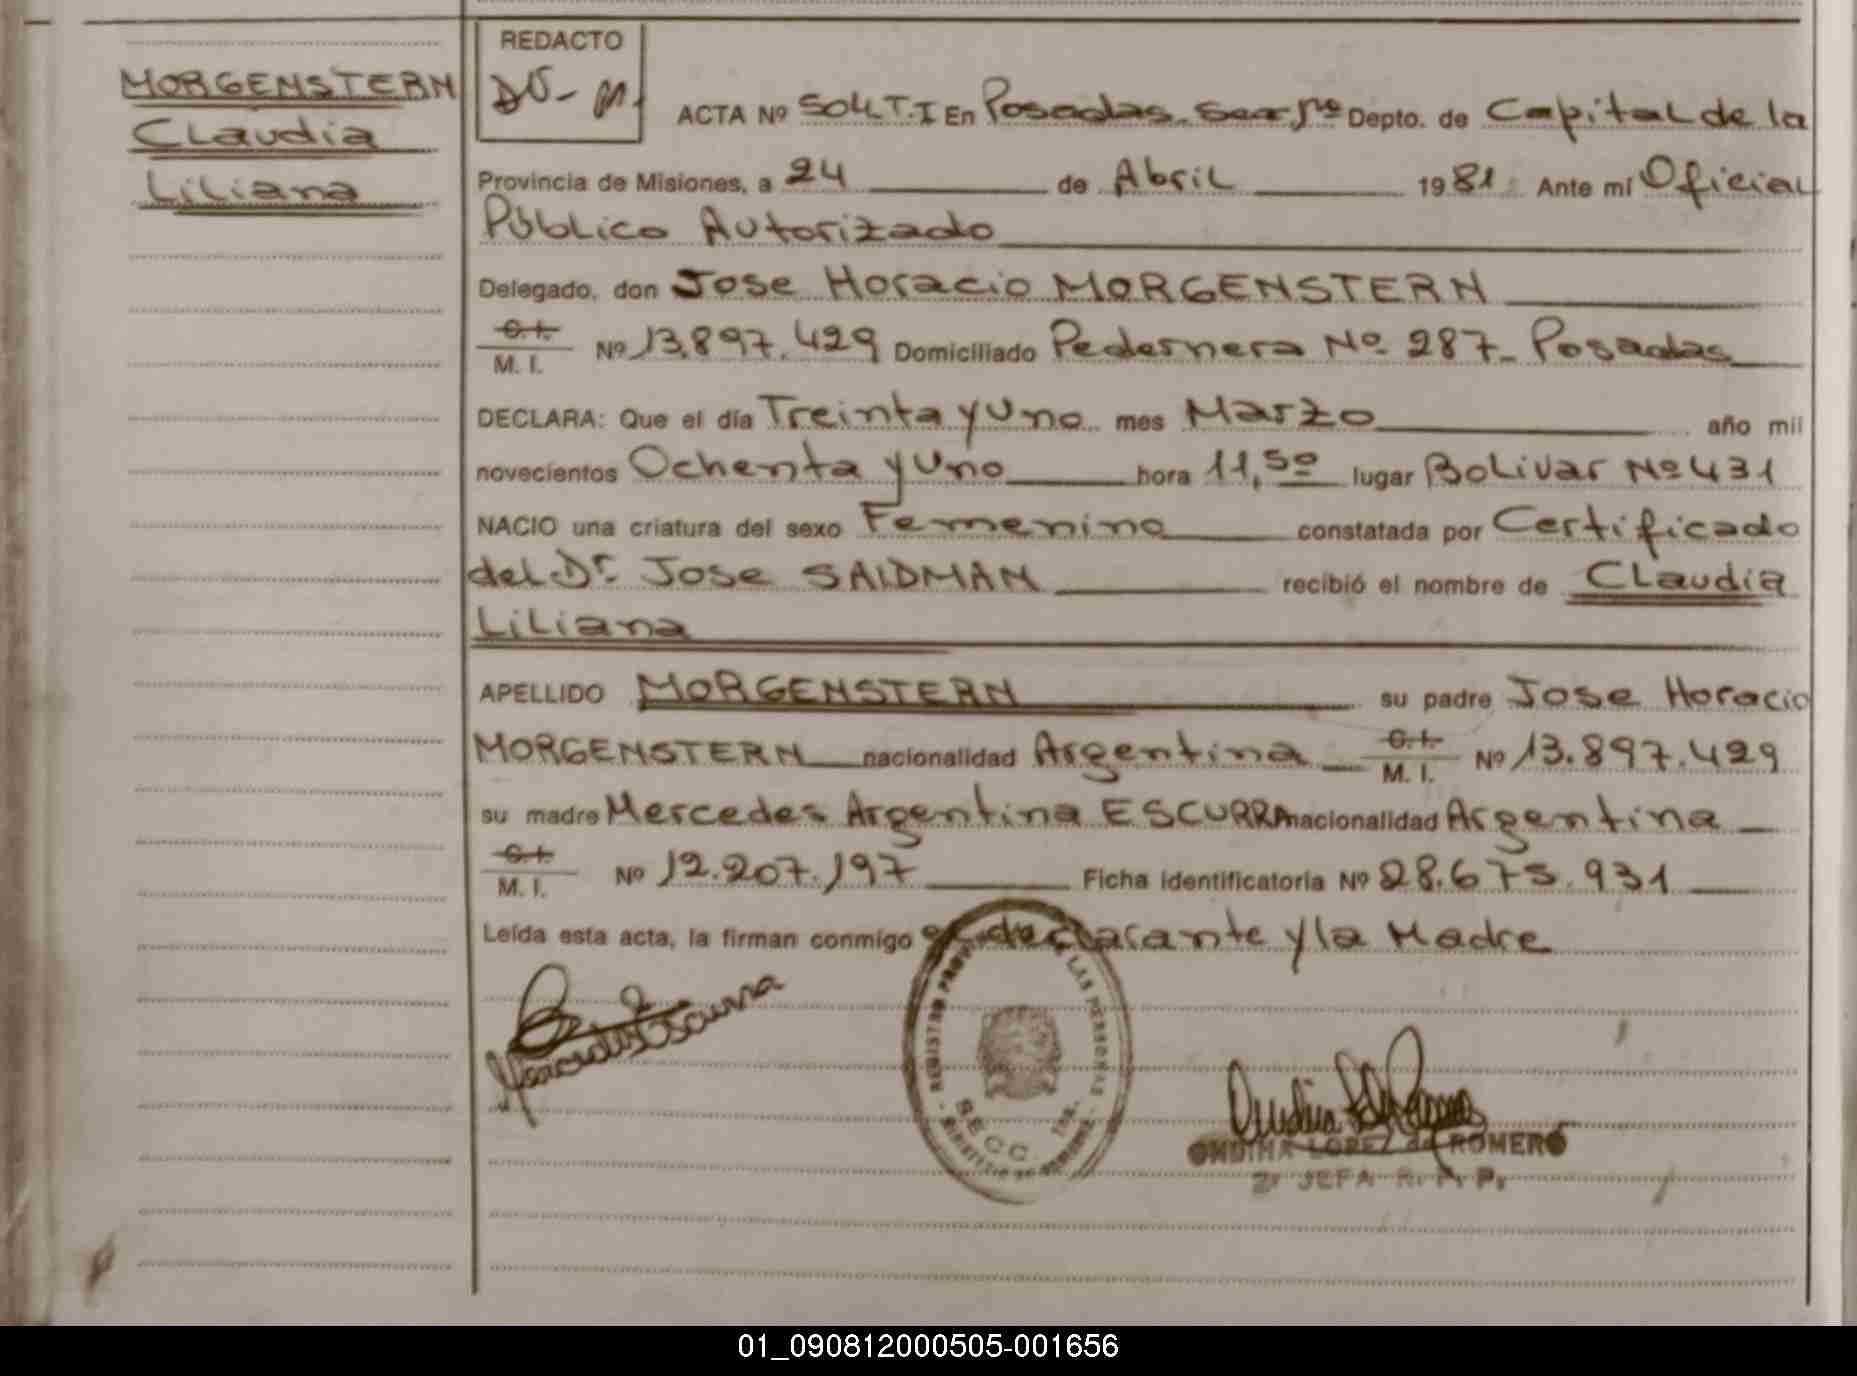 MORGENSTERN
Claudia
Liliana
REDACTO
ACTA Nº 504 T.I En Posadas Depto. de Capital de la
Provincia de Misiones, a 24 de Abril 1981 Ante mí Oficial
Público Autorizado
Delegado, don Jose Horacio MORGENSTERN
C.I.
M. I. Nº 13.897.429 Domiciliado Pedernera Nº 287- Posadas
DECLARA: Que el día Treinta y Uno mes Marzo año mil
novecientos Ochenta y Uno hora 11,50 lugar Bolivar Nº 431
NACIO una criatura del sexo Femenino constatada por Certificado
del Dr. Jose SAIDMAN recibió el nombre de Claudia
Liliana
APELLIDO MORGENSTERN su padre Jose Horacio
MORGENSTERN nacionalidad Argentina C.I. M. I. Nº 13.897.429
su madre Mercedes Argentina ESCURRA nacionalidad Argentina
C.I.
M. I. Nº 12.207.197 Ficha identificatoria Nº 28.675.931
Leída esta acta, la firman conmigo el declarante y la Madre
REGISTRO LAS PERSONAS
SECC
ONDINA LOPEZ de ROMERO
JEFA R. P. P.
01_090812000505-001656